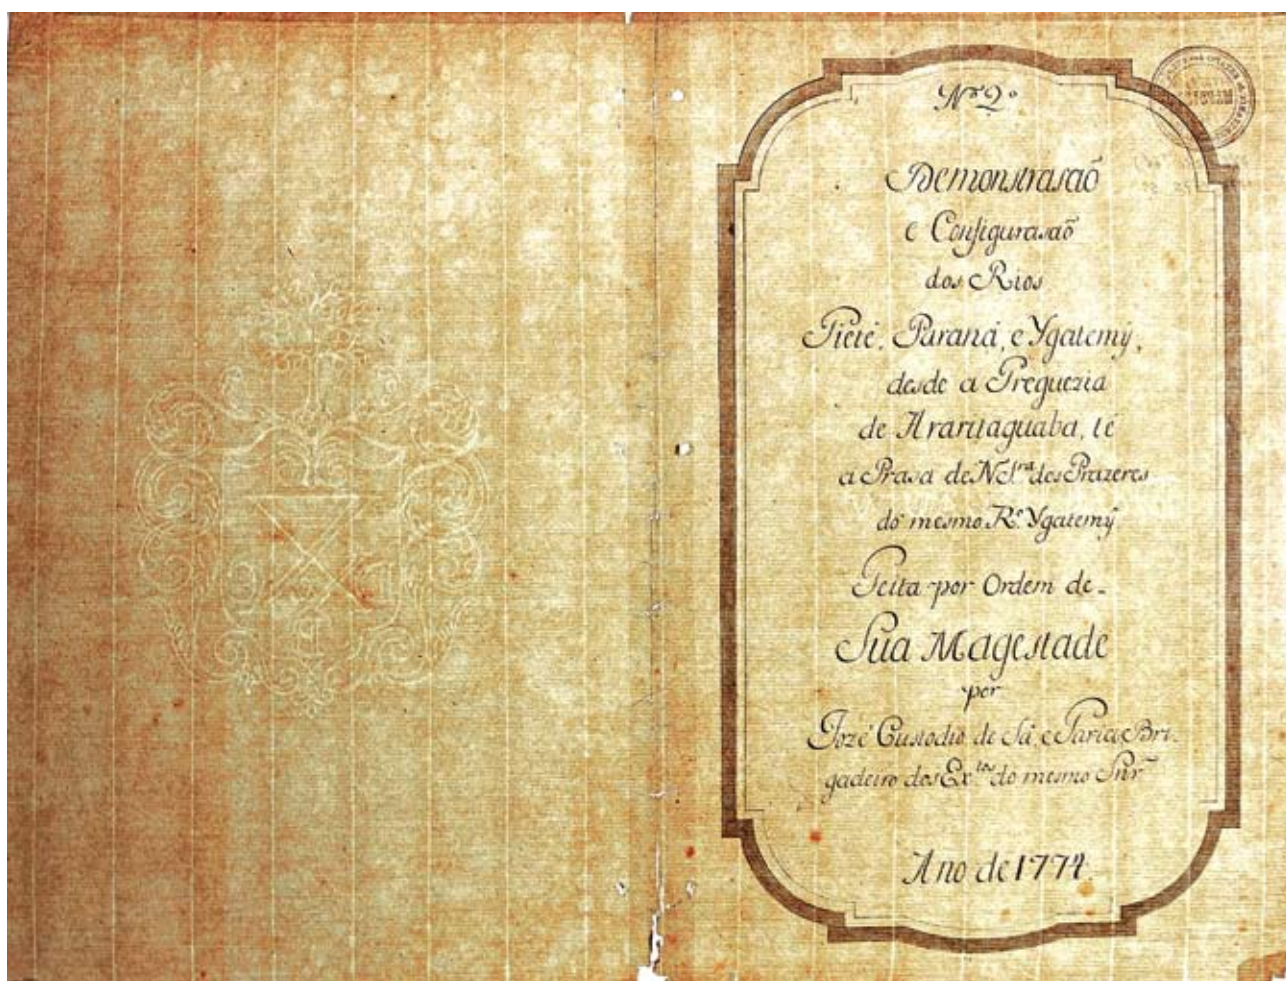 Nº 2º
Demonstrasaõ
e Configurasaõ
dos Rios
Tieté, Paraná, e Ygatemý,
desde a Freguezia
de Araritaguaba, té
a Prasa de N. S.ra dos Prazeres
do mesmo R.º Ygatemý
Feita por Ordem de
Sua Magestade
por
Jozé Custodio de Sá, e Faria Bri-
gadeiro dos Ex.tos do mesmo Snr.
Ano de 1774